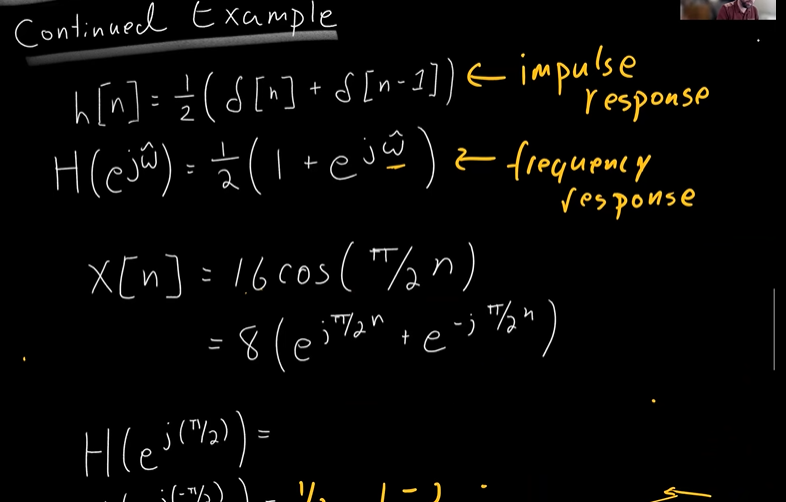 Continued Example
h[n] = 1/2 (δ[n] + δ[n-1]) ← impulse response
H(e^jω̂) = 1/2 (1 + e^jω̂) ← frequency response
x[n] = 16 cos(π/2 n)
= 8(e^jπ/2n + e^-jπ/2n)
H(e^j(π/2)) =
j(-π/2)) =